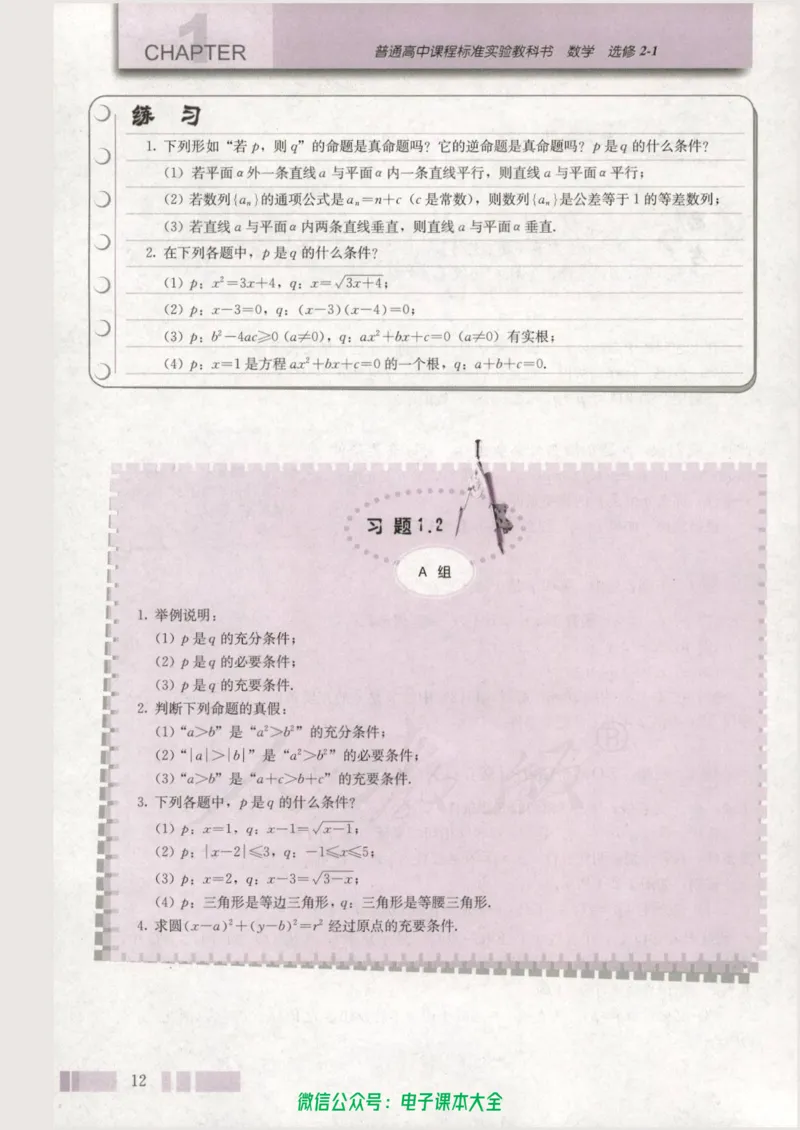 1
CHAPTER
普通高中课程标准实验教科书 数学 选修 2-1
练 习
1. 下列形如“若 p，则 q”的命题是真命题吗？它的逆命题是真命题吗？p 是 q 的什么条件？
(1) 若平面 α 外一条直线 a 与平面 α 内一条直线平行，则直线 a 与平面 α 平行；
(2) 若数列{aₙ}的通项公式是 aₙ=n+c（c 是常数），则数列{aₙ}是公差等于 1 的等差数列；
(3) 若直线 a 与平面 α 内两条直线垂直，则直线 a 与平面 α 垂直.
2. 在下列各题中，p 是 q 的什么条件？
(1) p：x²=3x+4，q：x=√(3x+4)；
(2) p：x-3=0，q：(x-3)(x-4)=0；
(3) p：b²-4ac≥0（a≠0），q：ax²+bx+c=0（a≠0）有实根；
(4) p：x=1 是方程 ax²+bx+c=0 的一个根，q：a+b+c=0.
习题1.2
A 组
1. 举例说明：
(1) p 是 q 的充分条件；
(2) p 是 q 的必要条件；
(3) p 是 q 的充要条件.
2. 判断下列命题的真假：
(1) “a>b”是“a²>b²”的充分条件；
(2) “|a|>|b|”是“a²>b²”的必要条件；
(3) “a>b”是“a+c>b+c”的充要条件.
3. 下列各题中，p 是 q 的什么条件？
(1) p：x=1，q：x-1=√(x-1)；
(2) p：|x-2|≤3，q：-1≤x≤5；
(3) p：x=2，q：x-3=√(3-x)；
(4) p：三角形是等边三角形，q：三角形是等腰三角形.
4. 求圆(x-a)²+(y-b)²=r² 经过原点的充要条件.
12
微信公众号：电子课本大全